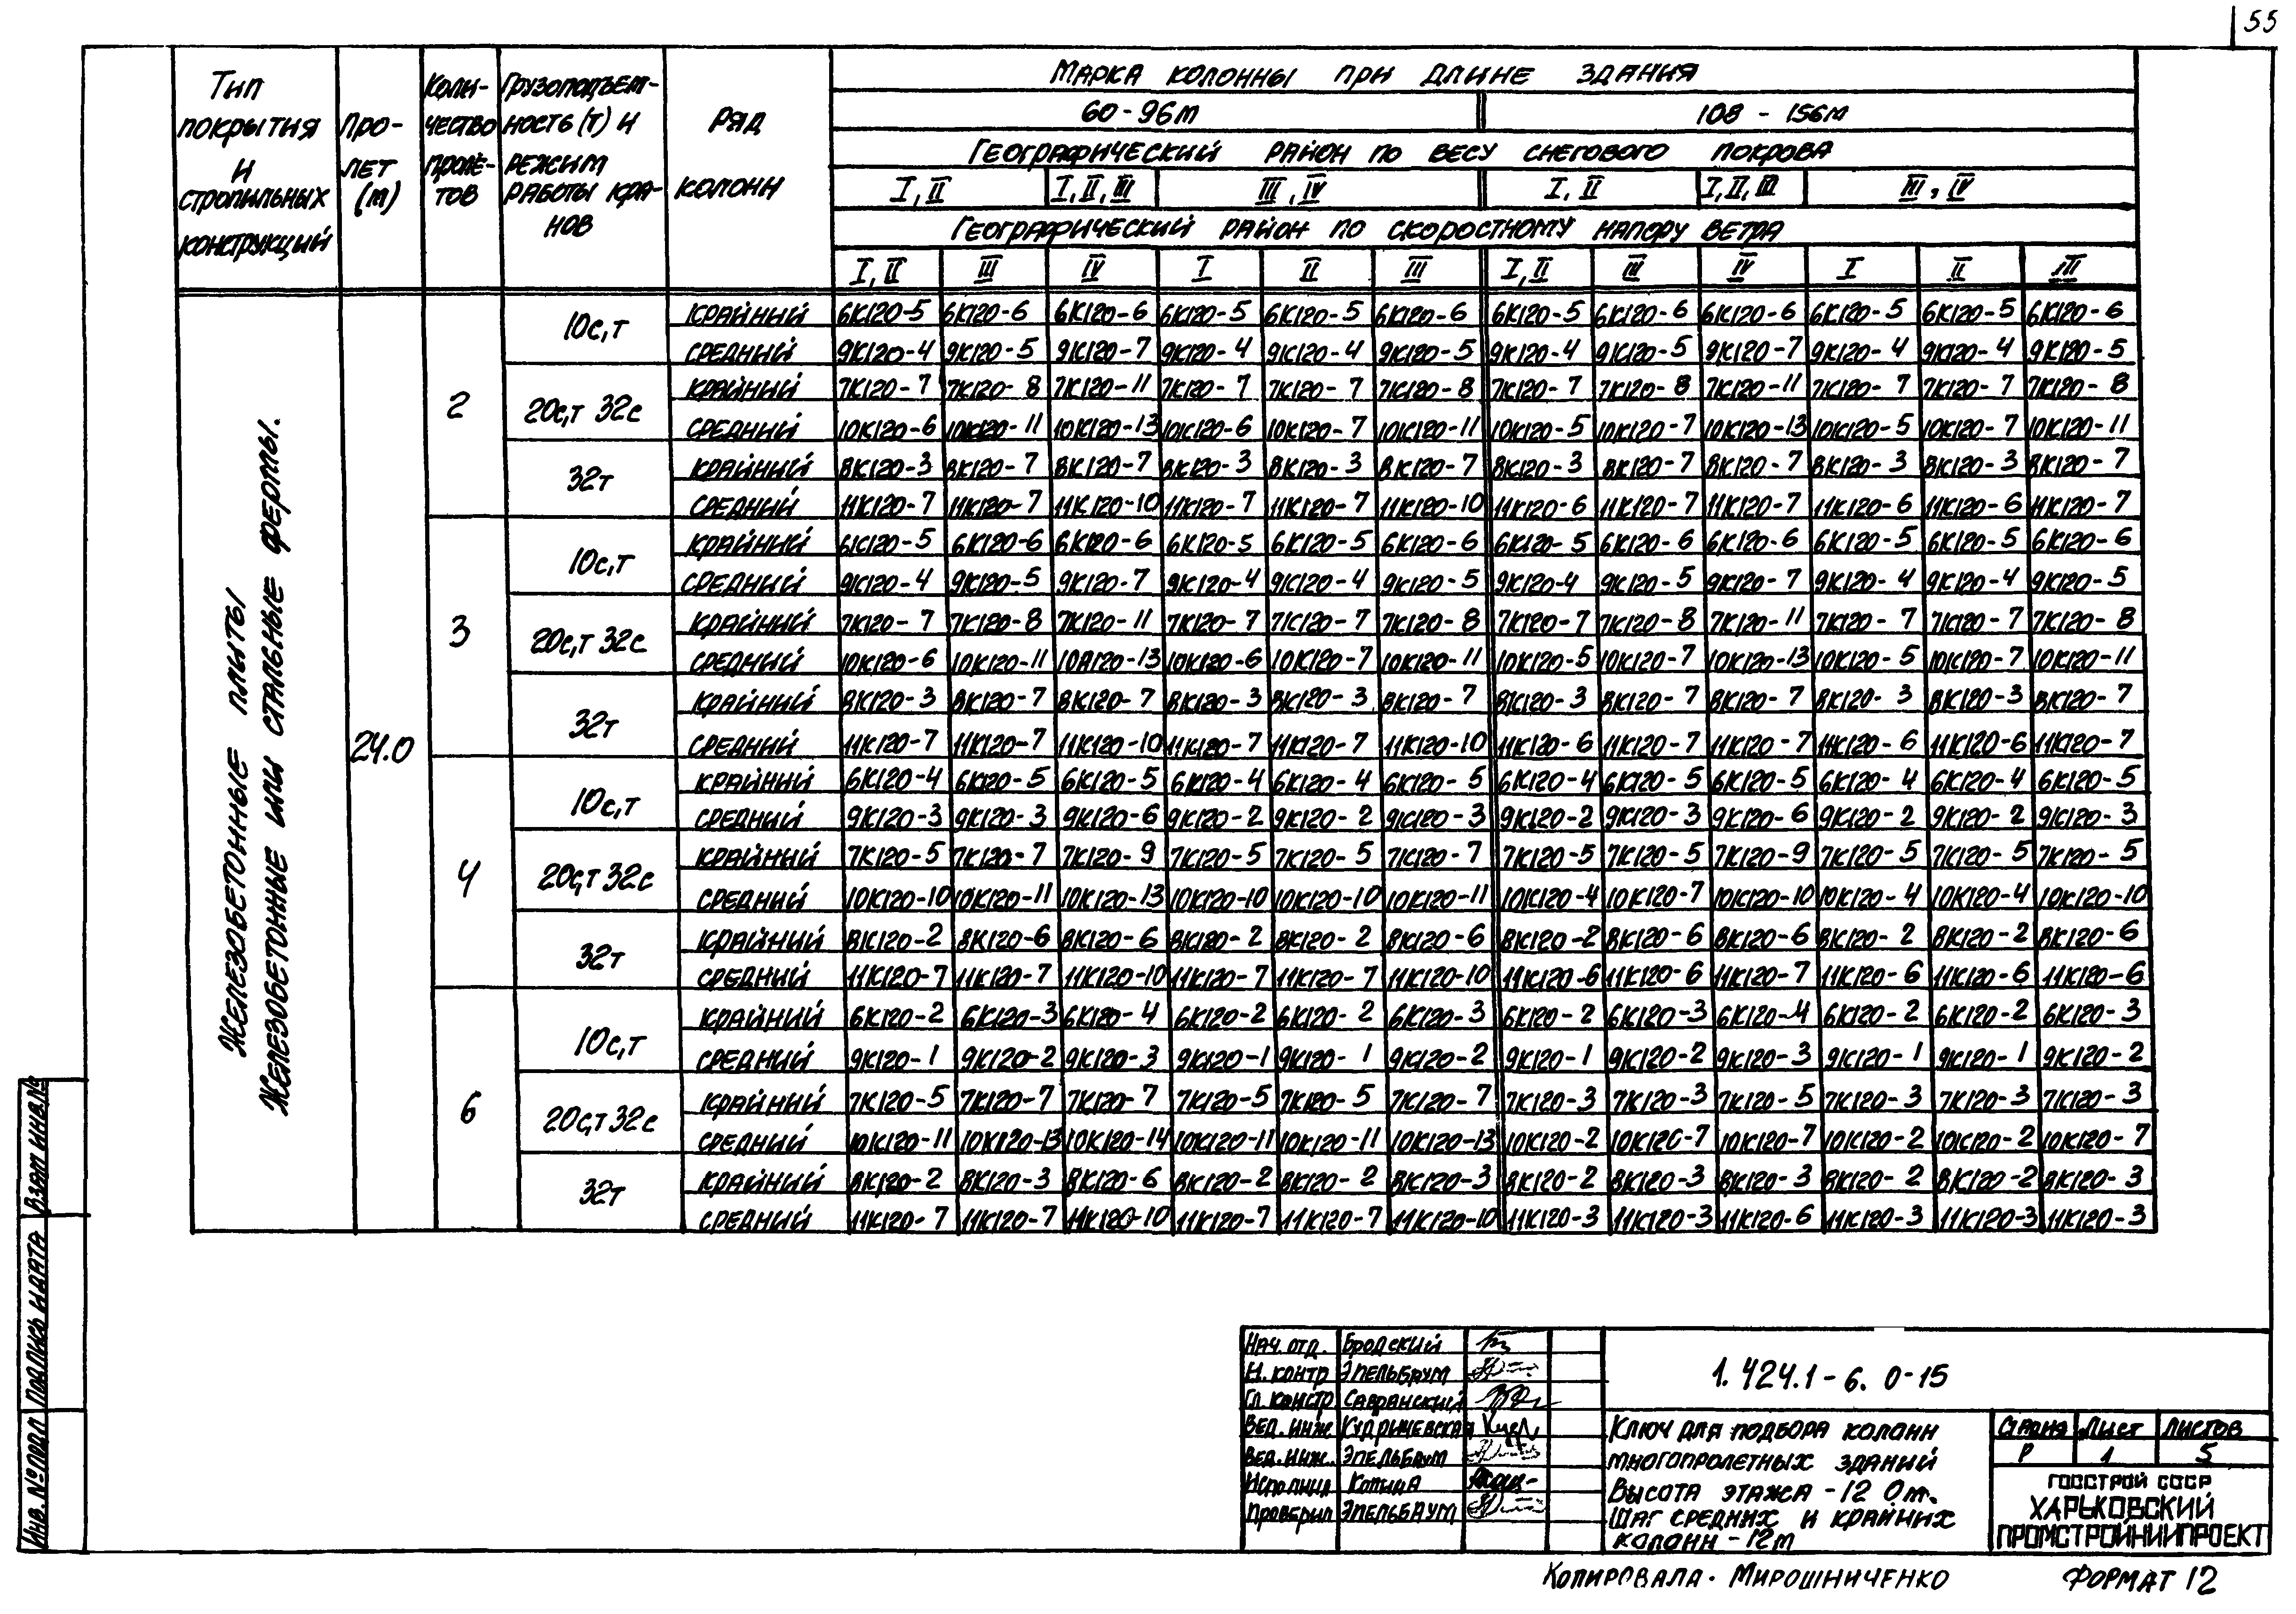 55
Тип покрытия и стропильных конструкций
Про-лет (м)
Коли-чество пролё-тов
Грузоподъем-ность (т) и режим работы кра-нов
Ряд колонн
Марка колонны при длине здания
60-96м 108 - 156м
Географический район по весу снегового покрова
I, II I, II, III III, IV I, II I, II, III III, IV
Географический район по скоростному напору ветра
I, II III IV I II III I, II III IV I II III
Железобетонные плиты
Железобетонные или стальные фермы.
24.0
2
10с,т
крайний 6К120-5 6К120-6 6К120-6 6К120-5 6К120-5 6К120-6 6К120-5 6К120-6 6К120-6 6К120-5 6К120-5 6К120-6
средний 9К120-4 9К120-5 9К120-7 9К120-4 9К120-4 9К120-5 9К120-4 9К120-5 9К120-7 9К120-4 9К120-4 9К120-5
20с,т 32с
крайний 7К120-7 7К120-8 7К120-11 7К120-7 7К120-7 7К120-8 7К120-7 7К120-8 7К120-11 7К120-7 7К120-7 7К120-8
средний 10К120-6 10К120-11 10К120-13 10К120-6 10К120-7 10К120-11 10К120-5 10К120-7 10К120-13 10К120-5 10К120-7 10К120-11
32т
крайний 8К120-3 8К120-7 8К120-7 8К120-3 8К120-3 8К120-7 8К120-3 8К120-7 8К120-7 8К120-3 8К120-3 8К120-7
средний 11К120-7 11К120-7 11К120-10 11К120-7 11К120-7 11К120-10 11К120-6 11К120-7 11К120-7 11К120-6 11К120-6 11К120-7
3
10с,т
крайний 6К120-5 6К120-6 6К120-6 6К120-5 6К120-5 6К120-6 6К120-5 6К120-6 6К120-6 6К120-5 6К120-5 6К120-6
средний 9К120-4 9К120-5 9К120-7 9К120-4 9К120-4 9К120-5 9К120-4 9К120-5 9К120-7 9К120-4 9К120-4 9К120-5
20с,т 32с
крайний 7К120-7 7К120-8 7К120-11 7К120-7 7К120-7 7К120-8 7К120-7 7К120-8 7К120-11 7К120-7 7К120-7 7К120-8
средний 10К120-6 10К120-11 10К120-13 10К120-6 10К120-7 10К120-11 10К120-5 10К120-7 10К120-13 10К120-5 10К120-7 10К120-11
32т
крайний 8К120-3 8К120-7 8К120-7 8К120-3 8К120-3 8К120-7 8К120-3 8К120-7 8К120-7 8К120-3 8К120-3 8К120-7
средний 11К120-7 11К120-7 11К120-10 11К120-7 11К120-7 11К120-10 11К120-6 11К120-7 11К120-7 11К120-6 11К120-6 11К120-7
4
10с,т
крайний 6К120-4 6К120-5 6К120-5 6К120-4 6К120-4 6К120-5 6К120-4 6К120-5 6К120-5 6К120-4 6К120-4 6К120-5
средний 9К120-3 9К120-3 9К120-6 9К120-2 9К120-2 9К120-3 9К120-2 9К120-3 9К120-6 9К120-2 9К120-2 9К120-3
20с,т 32с
крайний 7К120-5 7К120-7 7К120-9 7К120-5 7К120-5 7К120-7 7К120-5 7К120-5 7К120-9 7К120-5 7К120-5 7К120-5
средний 10К120-10 10К120-11 10К120-13 10К120-10 10К120-10 10К120-11 10К120-4 10К120-7 10К120-10 10К120-4 10К120-4 10К120-10
32т
крайний 8К120-2 8К120-6 8К120-6 8К120-2 8К120-2 8К120-6 8К120-2 8К120-6 8К120-6 8К120-2 8К120-2 8К120-6
средний 11К120-7 11К120-7 11К120-10 11К120-7 11К120-7 11К120-10 11К120-6 11К120-6 11К120-7 11К120-6 11К120-6 11К120-6
6
10с,т
крайний 6К120-2 6К120-3 6К120-4 6К120-2 6К120-2 6К120-3 6К120-2 6К120-3 6К120-4 6К120-2 6К120-2 6К120-3
средний 9К120-1 9К120-2 9К120-3 9К120-1 9К120-1 9К120-2 9К120-1 9К120-2 9К120-3 9К120-1 9К120-1 9К120-2
20с,т 32с
крайний 7К120-5 7К120-7 7К120-7 7К120-5 7К120-5 7К120-7 7К120-3 7К120-3 7К120-5 7К120-3 7К120-3 7К120-3
средний 10К120-11 10К120-13 10К120-14 10К120-11 10К120-11 10К120-13 10К120-2 10К120-7 10К120-7 10К120-2 10К120-2 10К120-7
32т
крайний 8К120-2 8К120-3 8К120-6 8К120-2 8К120-2 8К120-3 8К120-2 8К120-3 8К120-3 8К120-2 8К120-2 8К120-3
средний 11К120-7 11К120-7 11К120-10 11К120-7 11К120-7 11К120-10 11К120-3 11К120-3 11К120-6 11К120-3 11К120-3 11К120-3
Инв. № подл Подпись и дата Взам инв.№
Нач. отд. Бродский
Н. контр Эпельбаум
Гл. констр Савранский
Вед. инж Кудрычевская
Вед. инж. Эпельбаум
Исполнил Копица
Проверил Эпельбаум
1.424.1-6. 0-15
Ключ для подбора колонн
многопролетных зданий
Высота этажа - 12 0м.
Шаг средних и крайних
колонн - 12м
Стадия Лист Листов
Р 1 5
Госстрой СССР
Харьковский
Промстройниипроект
Копировала. Мирошниченко
Формат 12